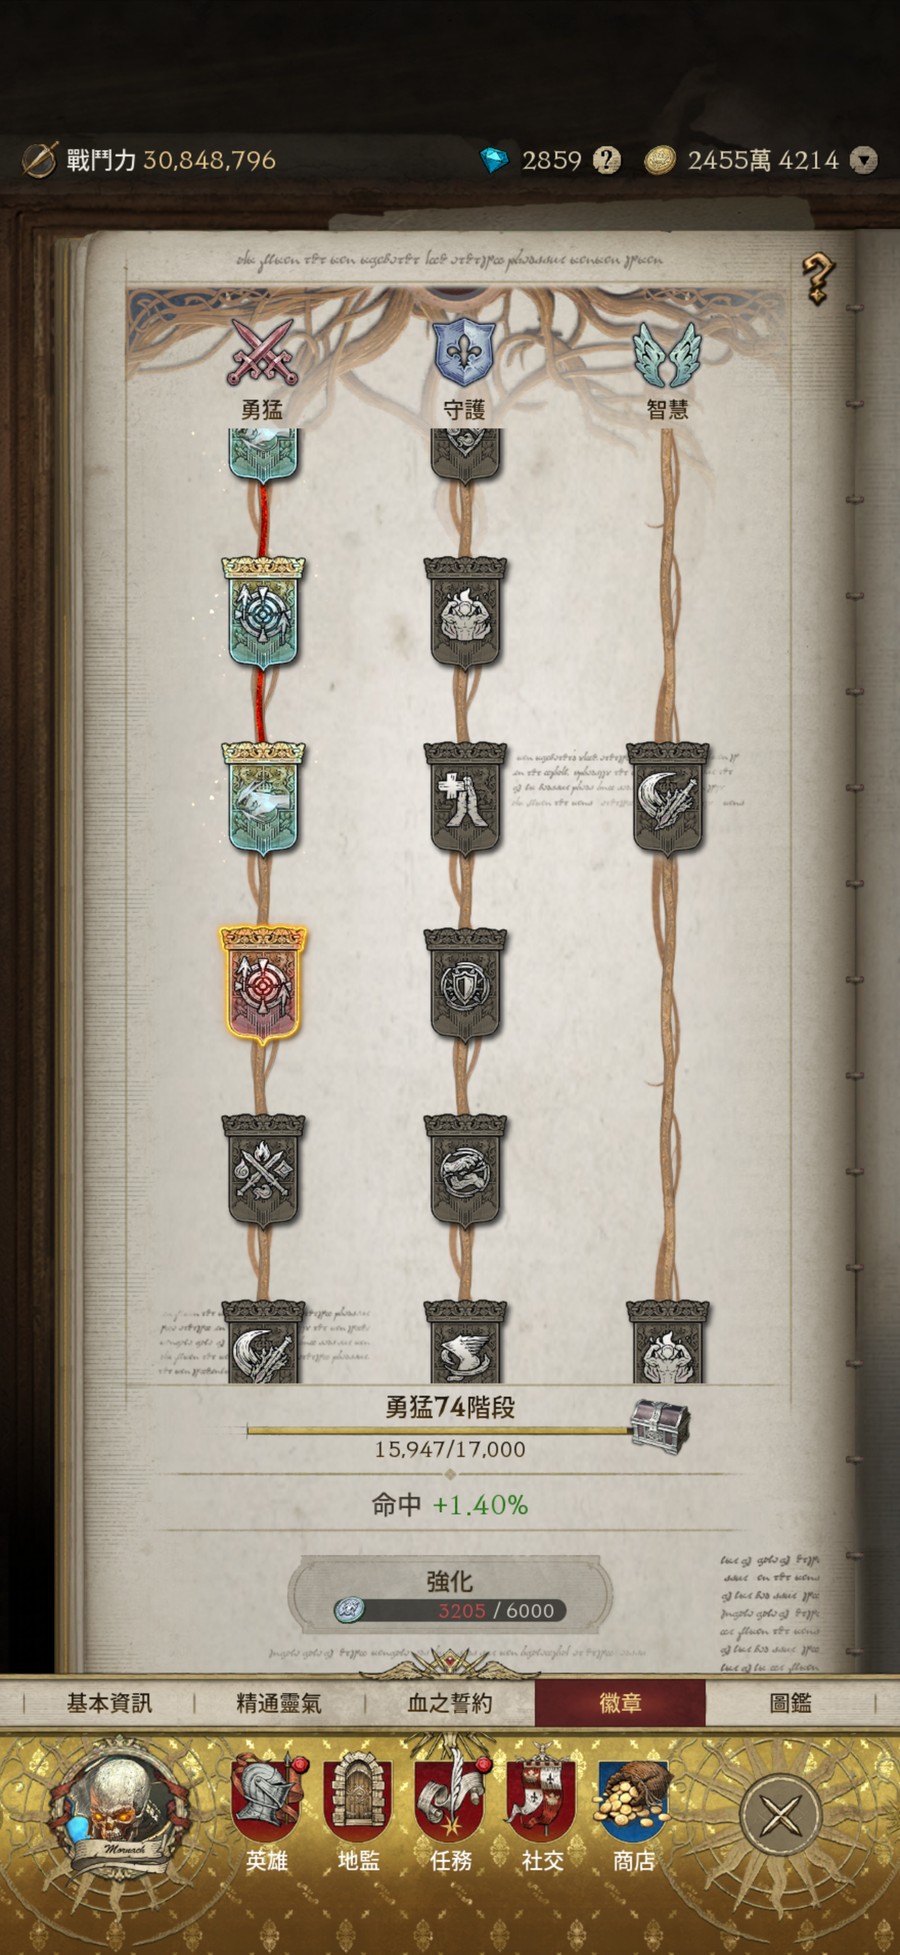 戰鬥力 30,848,796
2859
2455萬 4214
勇猛
守護
智慧
勇猛74階段
15,947/17,000
命中 +1.40%
強化
3205 / 6000
基本資訊
精通靈氣
血之誓約
徽章
圖鑑
Mornach
英雄
地監
任務
社交
商店